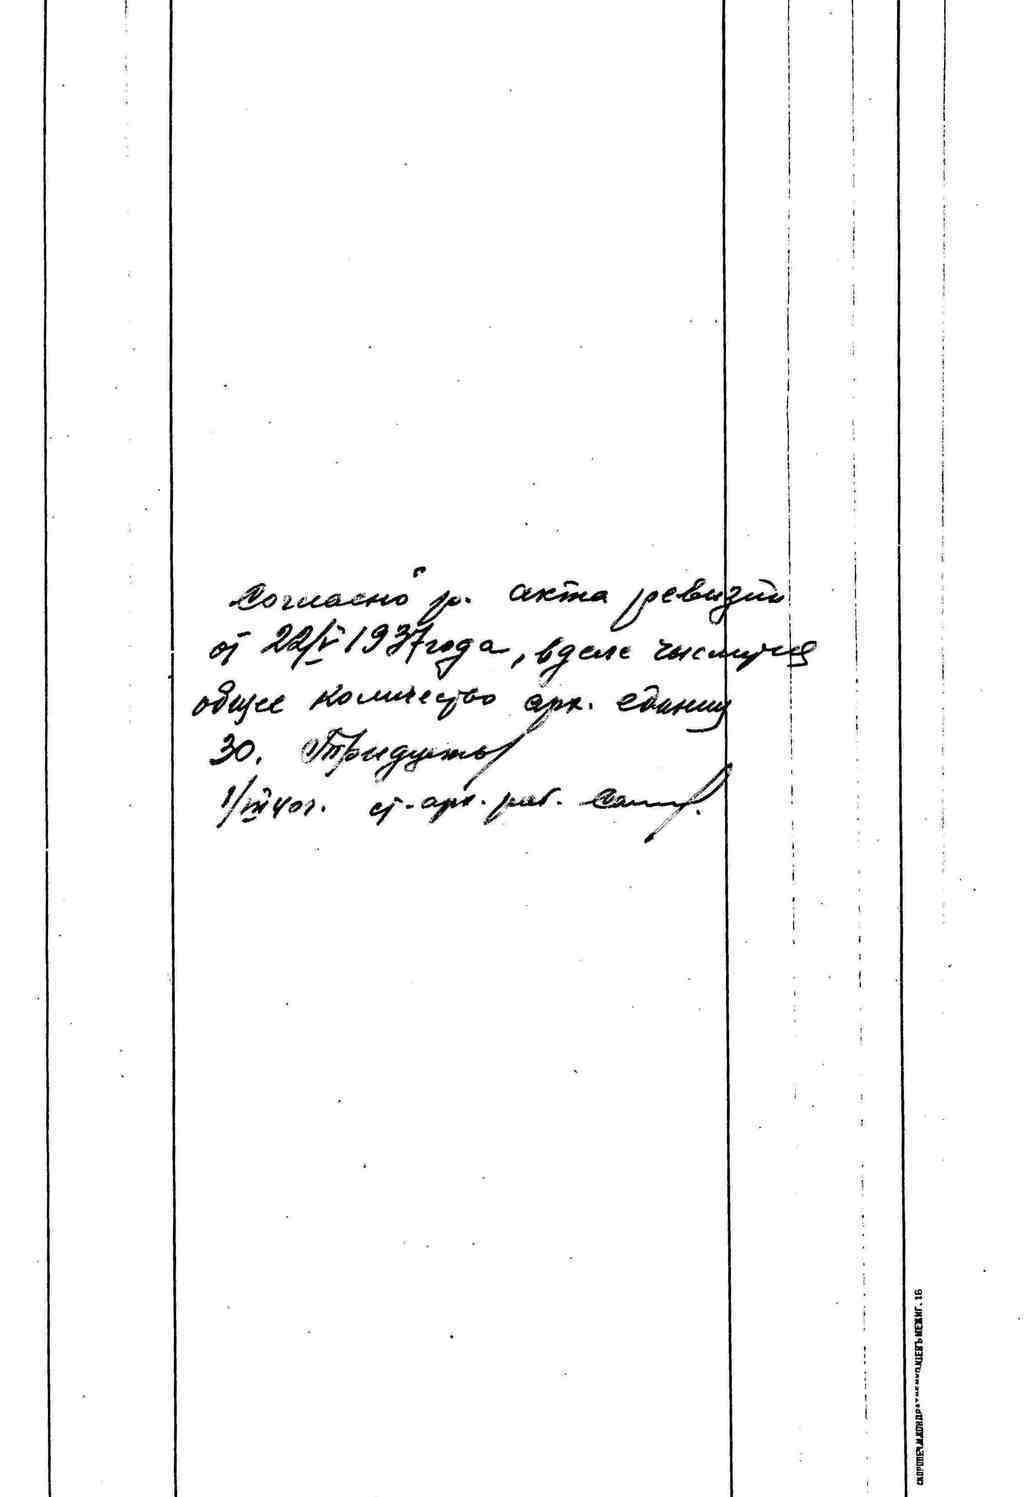 Согласно р. акта ревизии
от 22/V 1937 года, в деле числится
общее количество арх. единиц
30. Тридцать
1/III 40 г. ст. арх. раб.
МЕЖИГ. 16